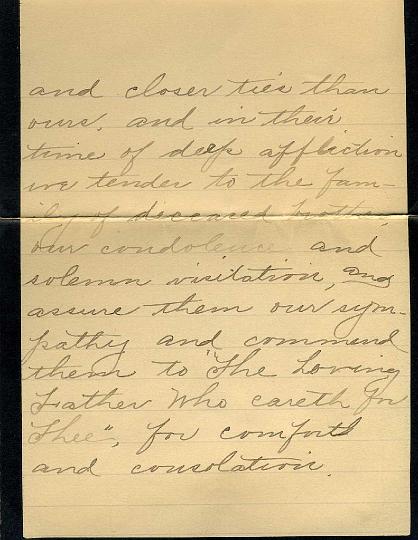 and closer ties than
ours. and in their
time of deep affliction
we tender to the fam-
ily of deceased brother,
our condolence and
solemn visitation, and
assure them our sym-
pathy and commend
them to "The Loving
Father Who careth for
Thee", for comfort
and consolation.